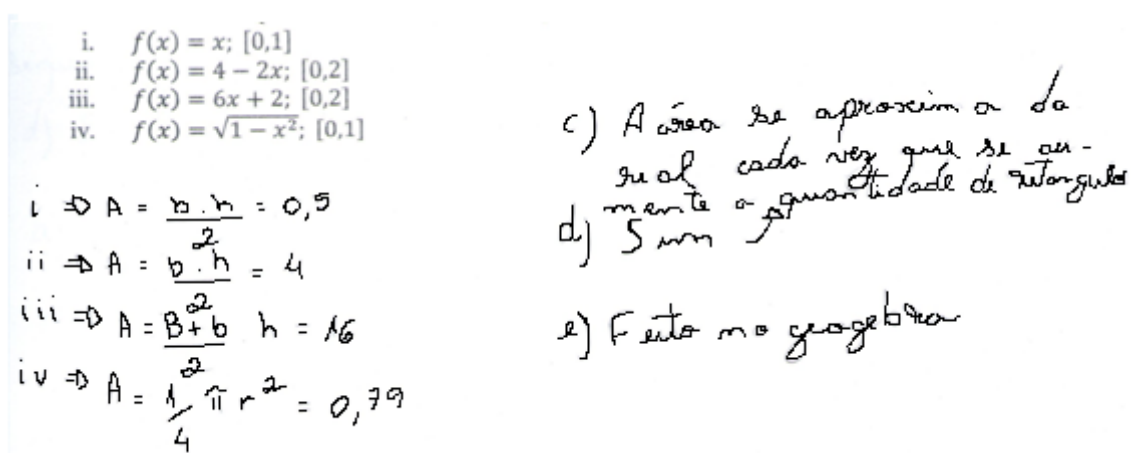 i. f(x) = x; [0,1]
ii. f(x) = 4 − 2x; [0,2]
iii. f(x) = 6x + 2; [0,2]
iv. f(x) = √(1 − x²); [0,1]
i ⇒ A = b . h / 2 = 0,5
ii ⇒ A = b . h / 2 = 4
iii ⇒ A = B + b / 2 h = 16
iv ⇒ A = 1/4 π r² = 0,79
c) A área se aproxima da
real cada vez que se au-
mente a quantidade de retangulos
d) Sim
e) Feito no geogebra